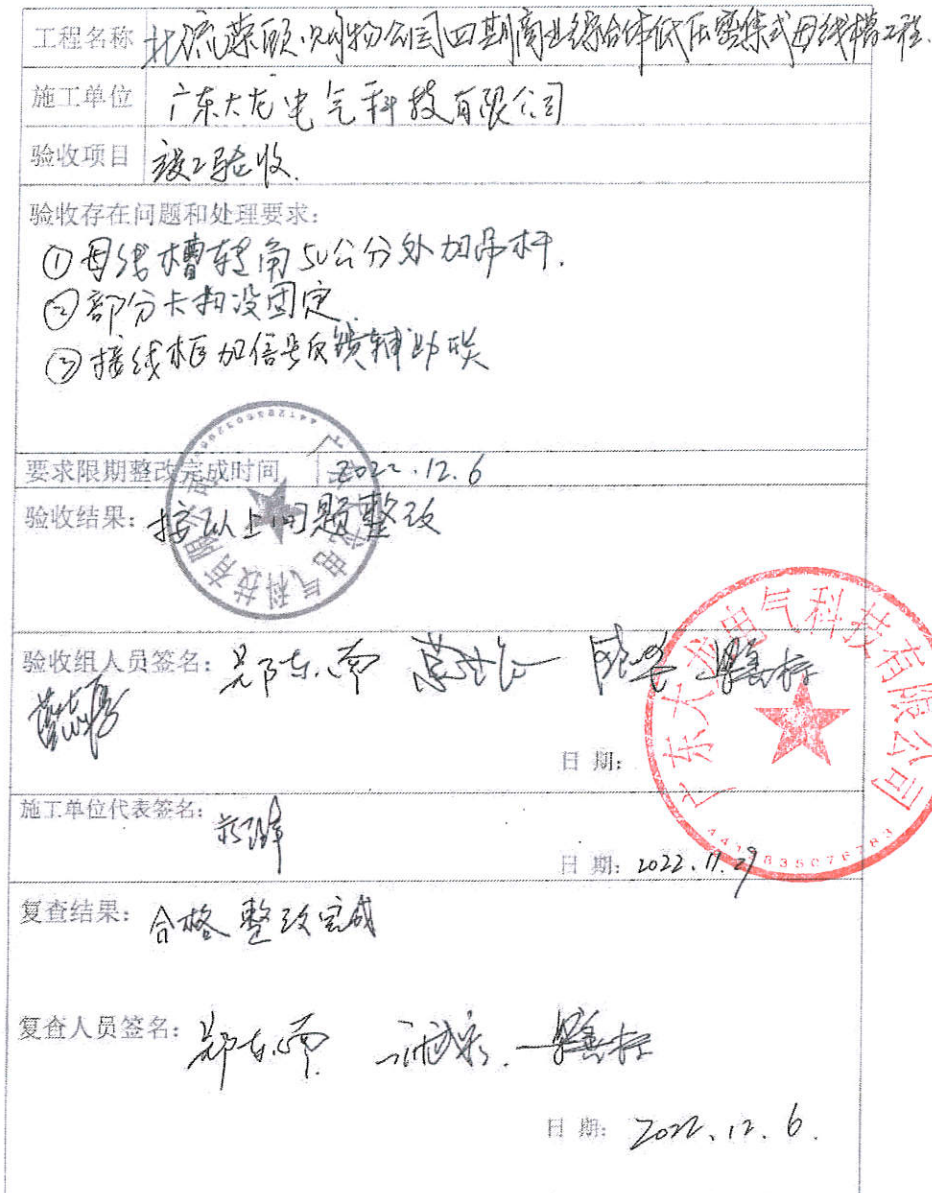 工程名称 北流荣颐·购物公园四期商业综合体低压密集式母线槽工程.
施工单位 广东大龙电气科技有限公司
验收项目 竣工验收.
验收存在问题和处理要求:
①母线槽转角50公分处加吊杆.
②部分卡扣没固定
③接线框加信号反馈辅助点
要求限期整改完成时间 2022.12.6
验收结果: 按以上问题整改
验收组人员签名: 郑东南
日期:
广东大龙电气科技有限公司
施工单位代表签名:
日期: 2022.11.29
复查结果: 合格 整改完成
复查人员签名: 郑东南
日期: 2022.12.6.